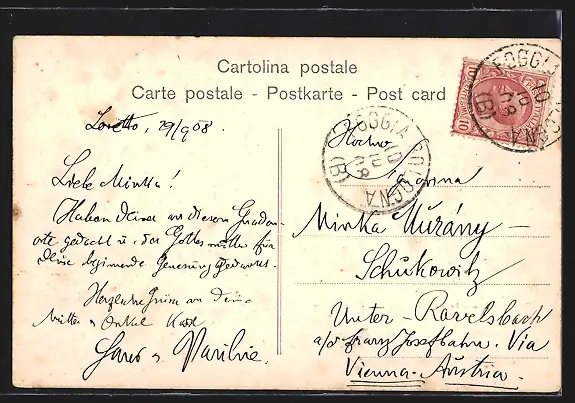 Cartolina postale
Carte postale - Postkarte - Post card
Loretto, 29/9 08.
Liebe Minka!
Haben deiner an diesem Gnaden-
orte gedacht u. der Gottesmutter für
deine beginnende Genesung gedankt.
Herzliche Grüsse an dein
Mutter u Onkel Karl
Hans u Marie.
Hochw.
Minka Murány -
Schukowitz
Unter - Ravelsbach
a/d Franz Josefbahn. Via
Vienna. Austria.
FOGGIA BOLOGNA
10
(B)
FOGGIA BOLOGNA
10
(B)
10